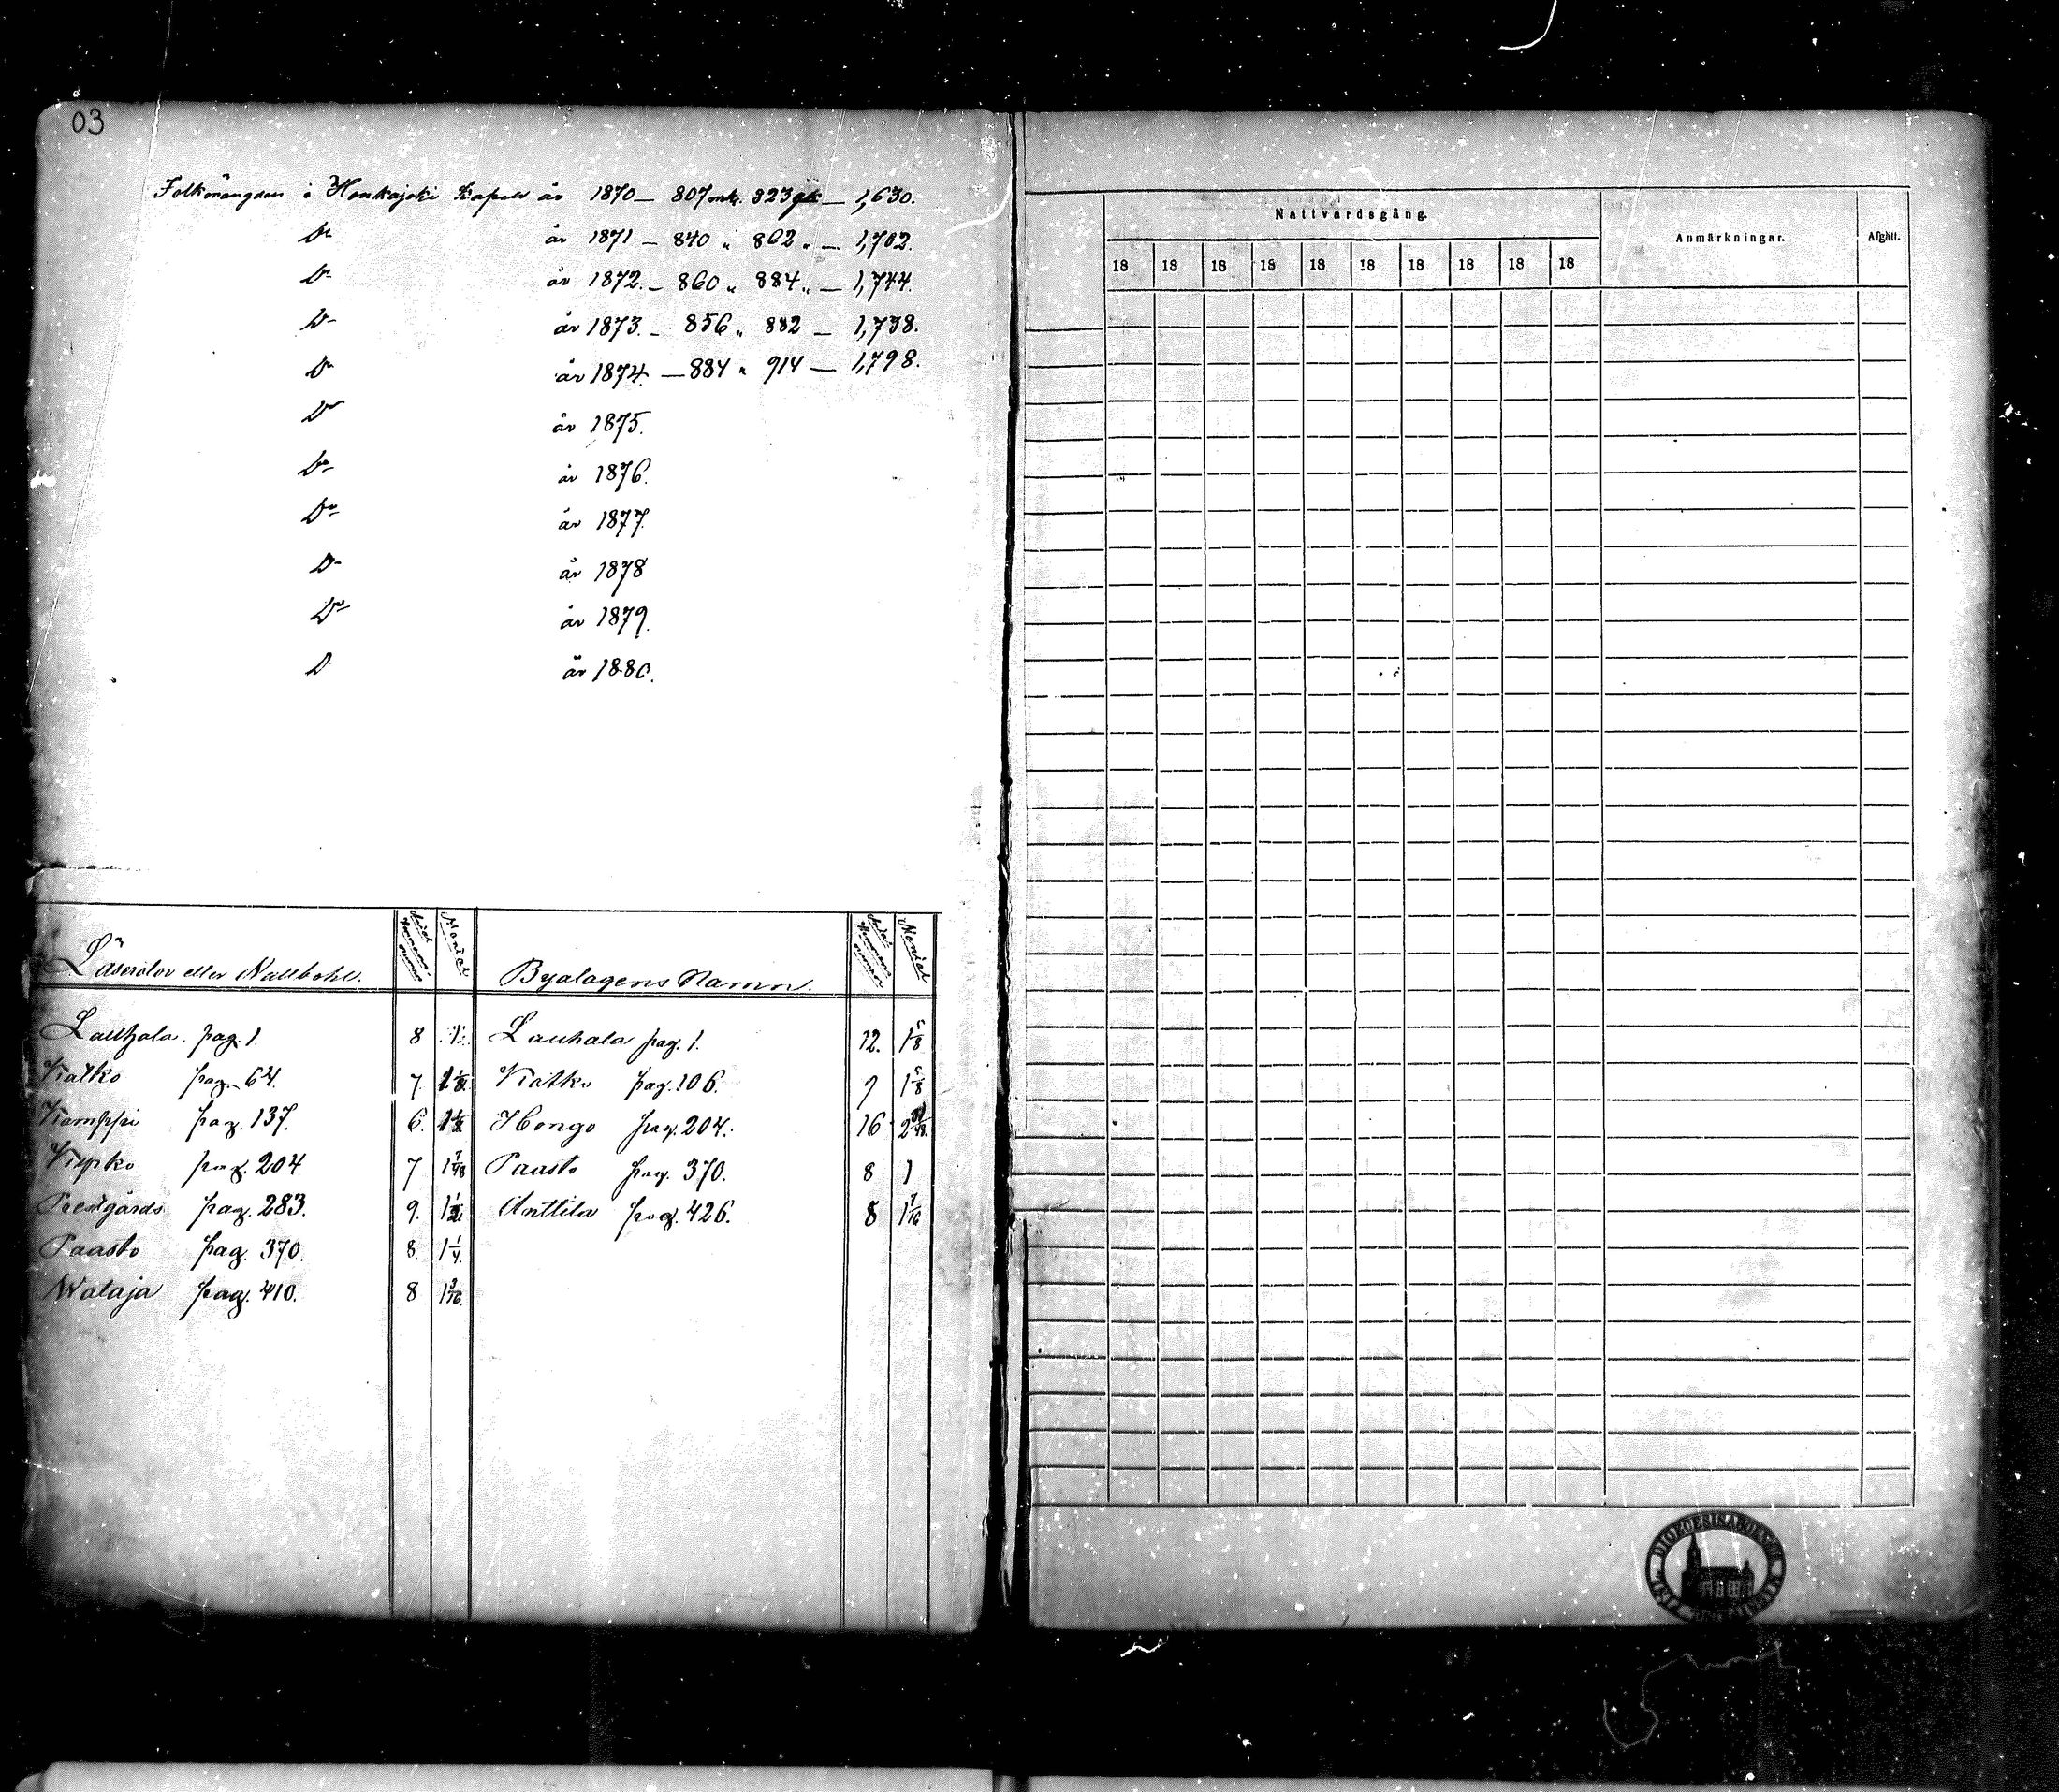 03
Folkmängden i Honkajoki Kapell år 1870 — 807 mk. 823 qk — 1,630.
Do år 1871 — 840 „ 862 „ — 1,702.
Do år 1872. — 860 „ 884 „ — 1,744.
Do år 1873. — 856 „ 882 — 1,738.
Do år 1874. — 884 „ 914 — 1,798.
Do år 1875.
Do år 1876.
Do år 1877.
Do år 1878
Do år 1879.
D år 1880.
Läserotor eller Nattbohl. Mantal Byalagens Namn. Mantal
Lauhala. pag. 1. 8 1. Lauhala pag. 1. 12. 1 5/8
Katko pag. 64. 7 Katko pag. 106. 9 1 5/8
Kamppi pag. 137. 6. Hongo pag. 204. 16
pag. 204. 7 1 7/48 Paasto pag. 370. 8 1
Prestgårds pag. 283. 9. Anttila pag. 426. 8 1 7/16
Paasto pag. 370. 8. 1 1/4.
Wataja pag. 410. 8 1 3/16.
Nattvardsgång. Anmärkningar. Afgått.
18 18 18 18 18 18 18 18 18 18